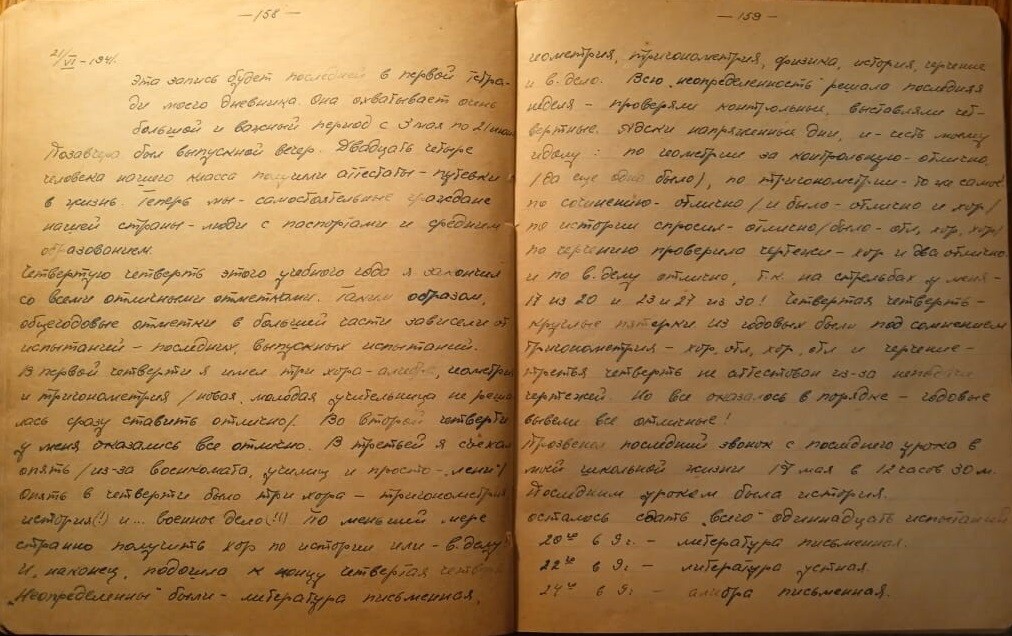 — 158 —
21/VI - 1941.
Эта запись будет последней в первой тетра-
ди моего дневника. Она охватывает очень
большой и важный период с 3 мая по 21 июня
Позавчера был выпускной вечер. Двадцать четыре
человека нашего класса получили аттестаты - путевки
в жизнь. Теперь мы - самостоятельные граждане
нашей страны - люди с паспортами и средним
образованием.
Четвертую четверть этого учебного года я закончил
со всеми отличными отметками. Таким образом,
общегодовые отметки в большей части зависели от
испытаний - последних, выпускных испытаний.
В первой четверти я имел три хора - алгебра, геометрия
и тригонометрия /новая, молодая учительница не реши-
лась сразу ставить отлично/. Во второй четверти
у меня оказались все отлично. В третьей я съехал
опять /из-за военкомата, училищ и просто - лени/
Опять в четверти было три хора - тригонометрия
история(!) и ... военное дело(!!) По меньшей мере
странно получить хор по истории или - в. делу
И, наконец, подошла к концу четвертая четверть
"Неопределенны" были - литература письменная,
— 159 —
геометрия, тригонометрия, физика, история, черчение
и в. дело. Всю "неопределенность" решала последняя
неделя - проверяли контрольные, выставляли чет-
вертные. Адски напряженные дни, и - честь моему
: по геометрии за контрольную - отлично
/да еще одно было/, по тригонометрии - то же самое
по сочинению - отлично /и было - отлично и хор/
по истории спросил - отлично /было - отл, хор, хор/
по черчению проверила чертежи - хор и два отлично
и по в. делу отлично, т.к. на стрельбах у меня -
17 из 20 и 23 и 27 из 30! Четвертая четверть -
круглые пятерки. Из годовых были под сомнением
тригонометрия - хор, отл, хор, отл и черчение -
третья четверть не аттестован из-за неподачи
чертежей. Но все оказалось в порядке - годовые
вывели все отличные!
Прозвенел последний звонок с последнего урока в
моей школьной жизни 17 мая в 12 часов 30 м.
Последним уроком была история.
осталось сдать "всего" одиннадцать испытаний
20го в 9 ч. - литература письменная.
22го в 9 ч - литература устная.
24го в 9 ч - алгебра письменная.